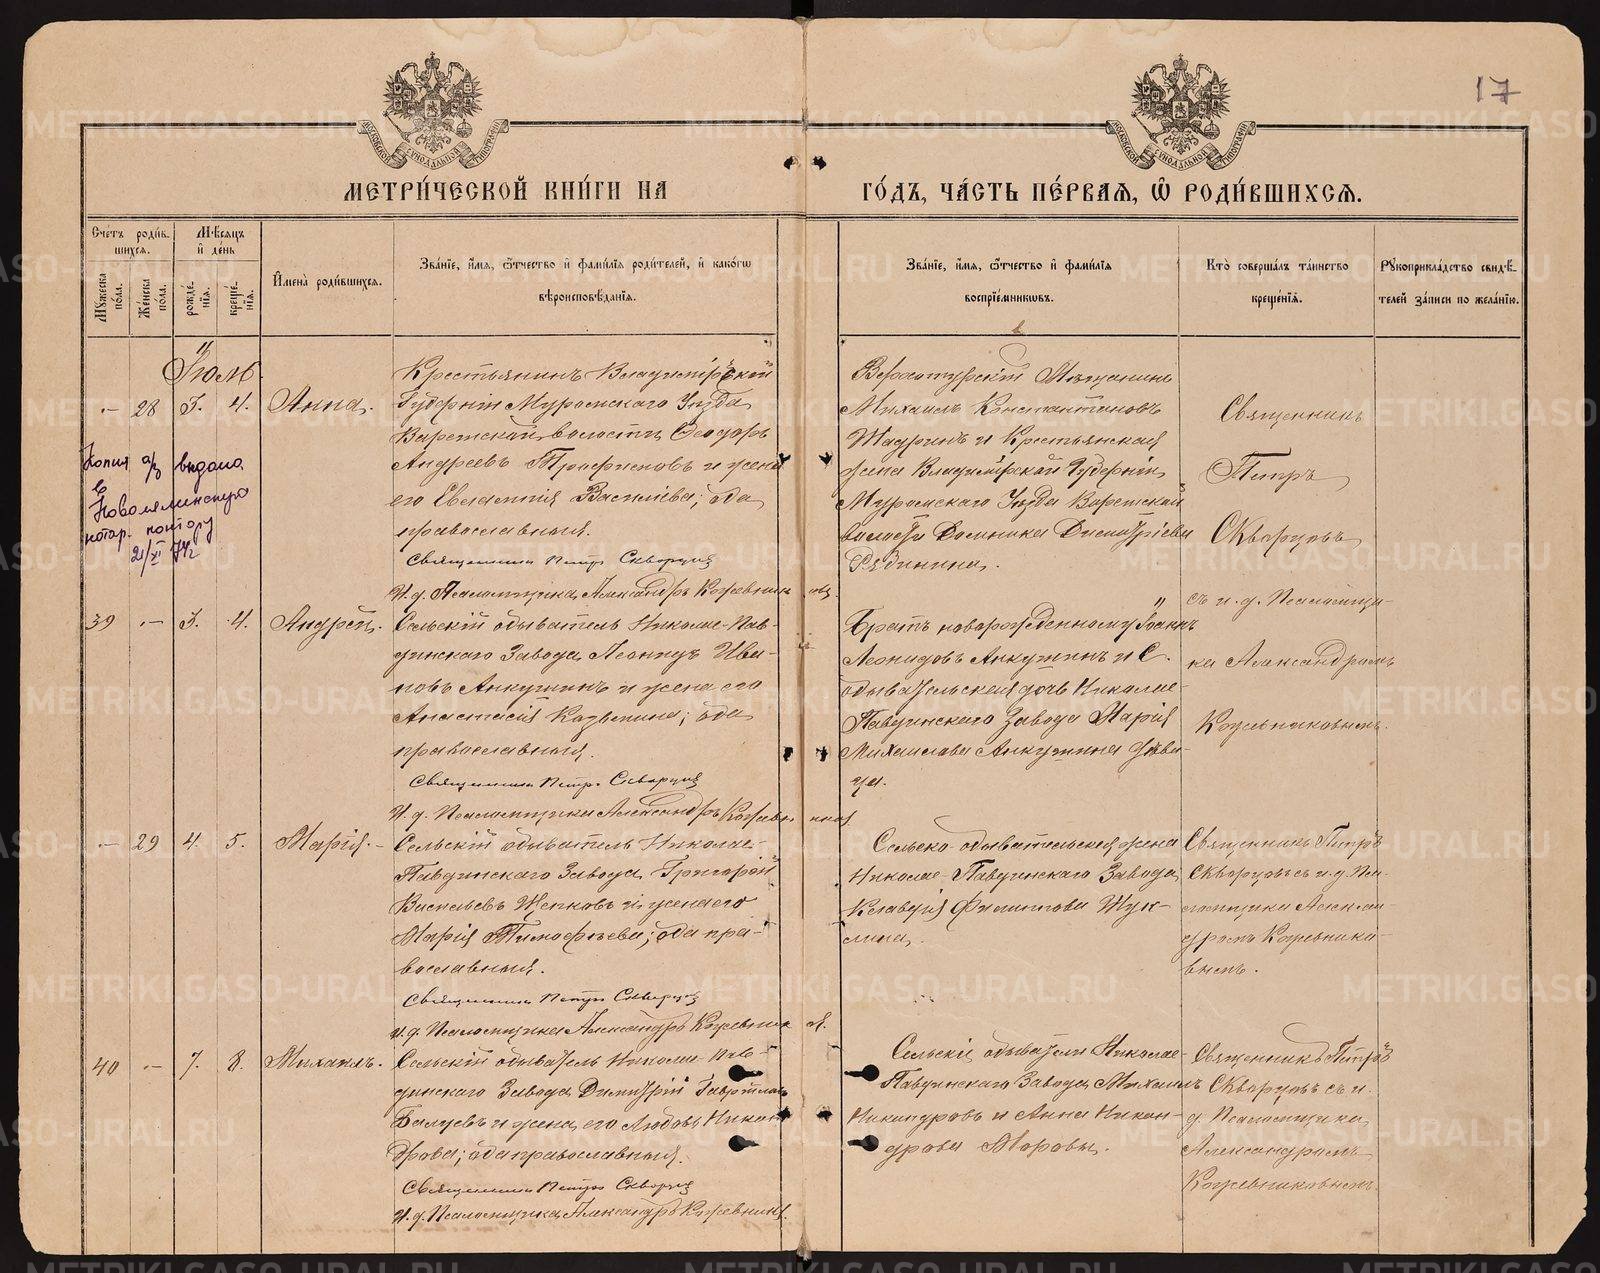 17
МЕТРИ́ЧЕСКОЙ КНИ́ГИ НА
ГО́ДЪ, ЧА́СТЬ ПЕ́РВАѦ, Ѽ РОДИ́ВШИХСѦ.
Сче́тъ роди́в-
шихся.
Мꙋжеска пола.
Же́нска по́ла.
Мѣ́сяцъ
и҆ де́нь
рожде́-
нїѧ.
креще́-
нїѧ.
И҆мена̀ роди́вшихся.
Зва́нїе, и҆́мѧ, ѻ҆́тчество и҆ фами́лїѧ роди́телей, и҆ како́гѡ
вѣроисповѣ́данїѧ.
Зва́нїе, и҆́мѧ, ѻ҆́тчество и҆ фами́лїѧ
воспрїе́мникѡвъ.
Кто̀ соверша́лъ та́инство
креще́нїѧ.
Рꙋкоприкла́дство свидѣ́-
телей за́писи по жела́нїю.
Іюль.
— 28 3. 4. Анна.
Крестьянинъ Владимірской
Губерніи Муромскаго Уѣзда
Варежской волости Ѳеодоръ
Андреевъ Трофимовъ и жена
его Евлампія Васильева; оба
православныя.
Священникъ Петръ Скворцовъ
И. д. Псаломщика Александръ Кожевниковъ
Верхотурскій Мѣщанинъ
Михаилъ Константиновъ
Шадринъ и Крестьянская
жена Владимірской Губерніи
Муромскаго Уѣзда Варежской
волости Домника Димитріева
Рябинина.
Священникъ
Петръ
Скворцовъ
съ и. д. Псаломщи-
ка Александромъ
Кожевниковымъ.
Копия а/з выдана
в
Новолялинскую
нотар. контору
21/XI 74г
39 — 3. 4. Андрей.
Сельскій обыватель Николае-Пав-
динскаго Завода Леонидъ Ива-
новъ Анкушинъ и жена его
Анастасія Козьмина; оба
православныя.
Священникъ Петръ Скворцовъ
И. д. Псаломщика Александръ Кожевниковъ
Братъ новорожденному Іоаннъ
Леонидовъ Анкушинъ и С.
обывательская дочь Николае-
Павдинскаго Завода Марія
Михаилова Анкушина дѣви-
ца.
— 29 4. 5. Марія.
Сельскій обыватель Николае-
Павдинскаго Завода Григорій
Васильевъ Щепковъ и жена его
Марія Тимофѣева; оба пра-
вославныя.
Священникъ Петръ Скворцовъ
И. д. Псаломщика Александръ Кожевниковъ
Сельско-обывательская жена
Николае-Павдинскаго Завода
Клавдія Филиппова
Священникъ Петръ
Скворцовъ съ и. д. Пса-
ломщика Алексан-
дромъ Кожевнико-
вымъ.
40 — 7. 8. Михаилъ.
Сельскій обыватель Николае-Пав-
динскаго Завода Димитрій Гавриловъ
Балуевъ и жена его Любовь Никан-
дрова; оба православныя.
Священникъ Петръ Скворцовъ
И. д. Псаломщика Александръ Кожевниковъ
Сельскіе обыватели Николае-
Павдинскаго Завода Михаилъ
Никандровъ и Анна Никан-
дрова Торовы.
Священникъ Петръ
Скворцовъ съ и.
д. Псаломщика
Александромъ
Кожевниковымъ.
METRIKI.GASO-URAL.RU